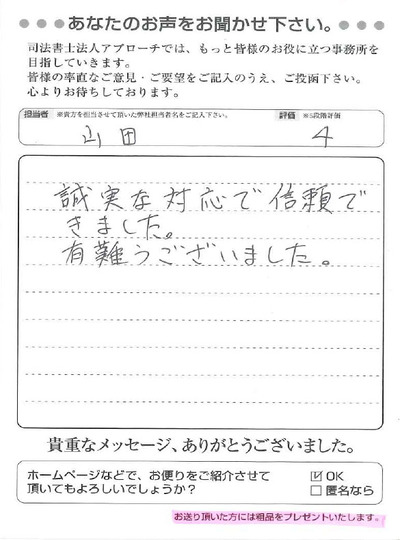 あなたのお声をお聞かせ下さい。
司法書士法人アプローチでは、もっと皆様のお役に立つ事務所を
目指していきます。
皆様の率直なご意見・ご要望をご記入のうえ、ご投函下さい。
心よりお待ちしております。
担当者 ※貴方を担当させて頂いた弊社担当者名をご記入下さい。 評価 ※5段階評価
山田 4
誠実な対応で信頼で
きました。
有難うございました。
貴重なメッセージ、ありがとうございました。
ホームページなどで、お便りをご紹介させて
頂いてもよろしいでしょうか?
☑ OK
□ 匿名なら
お送り頂いた方には粗品をプレゼントいたします。